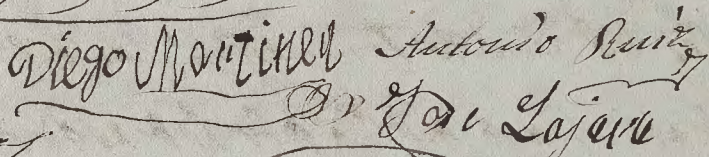 Diego Martinez Antonio Ruiz
Dn Jose Lajara